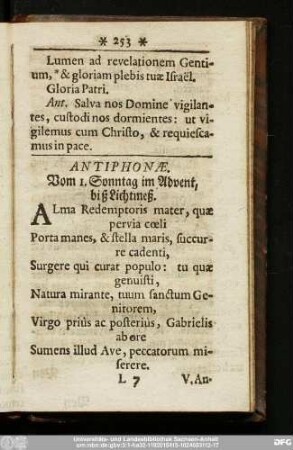 * 253 *
Lumen ad revelationem Genti-
um, * & gloriam plebis tuæ Israël.
Gloria Patri.
Ant. Salva nos Domine vigilan-
tes, custodi nos dormientes: ut vi-
gilemus cum Christo, & requiesca-
mus in pace.
ANTIPHONÆ.
Vom 1. Sonntag im Advent,
biß Lichtmeß.
ALma Redemptoris mater, quæ
pervia cœli
Porta manes, & stella maris, succur-
re cadenti,
Surgere qui curat populo: tu quæ
genuisti,
Natura mirante, tuum sanctum Ge-
nitorem,
Virgo priùs ac posterius, Gabrielis
ab ore
Sumens illud Ave, peccatorum mi-
serere.
L 7 V. An-
Universitäts- und Landesbibliothek Sachsen-Anhalt
DFG